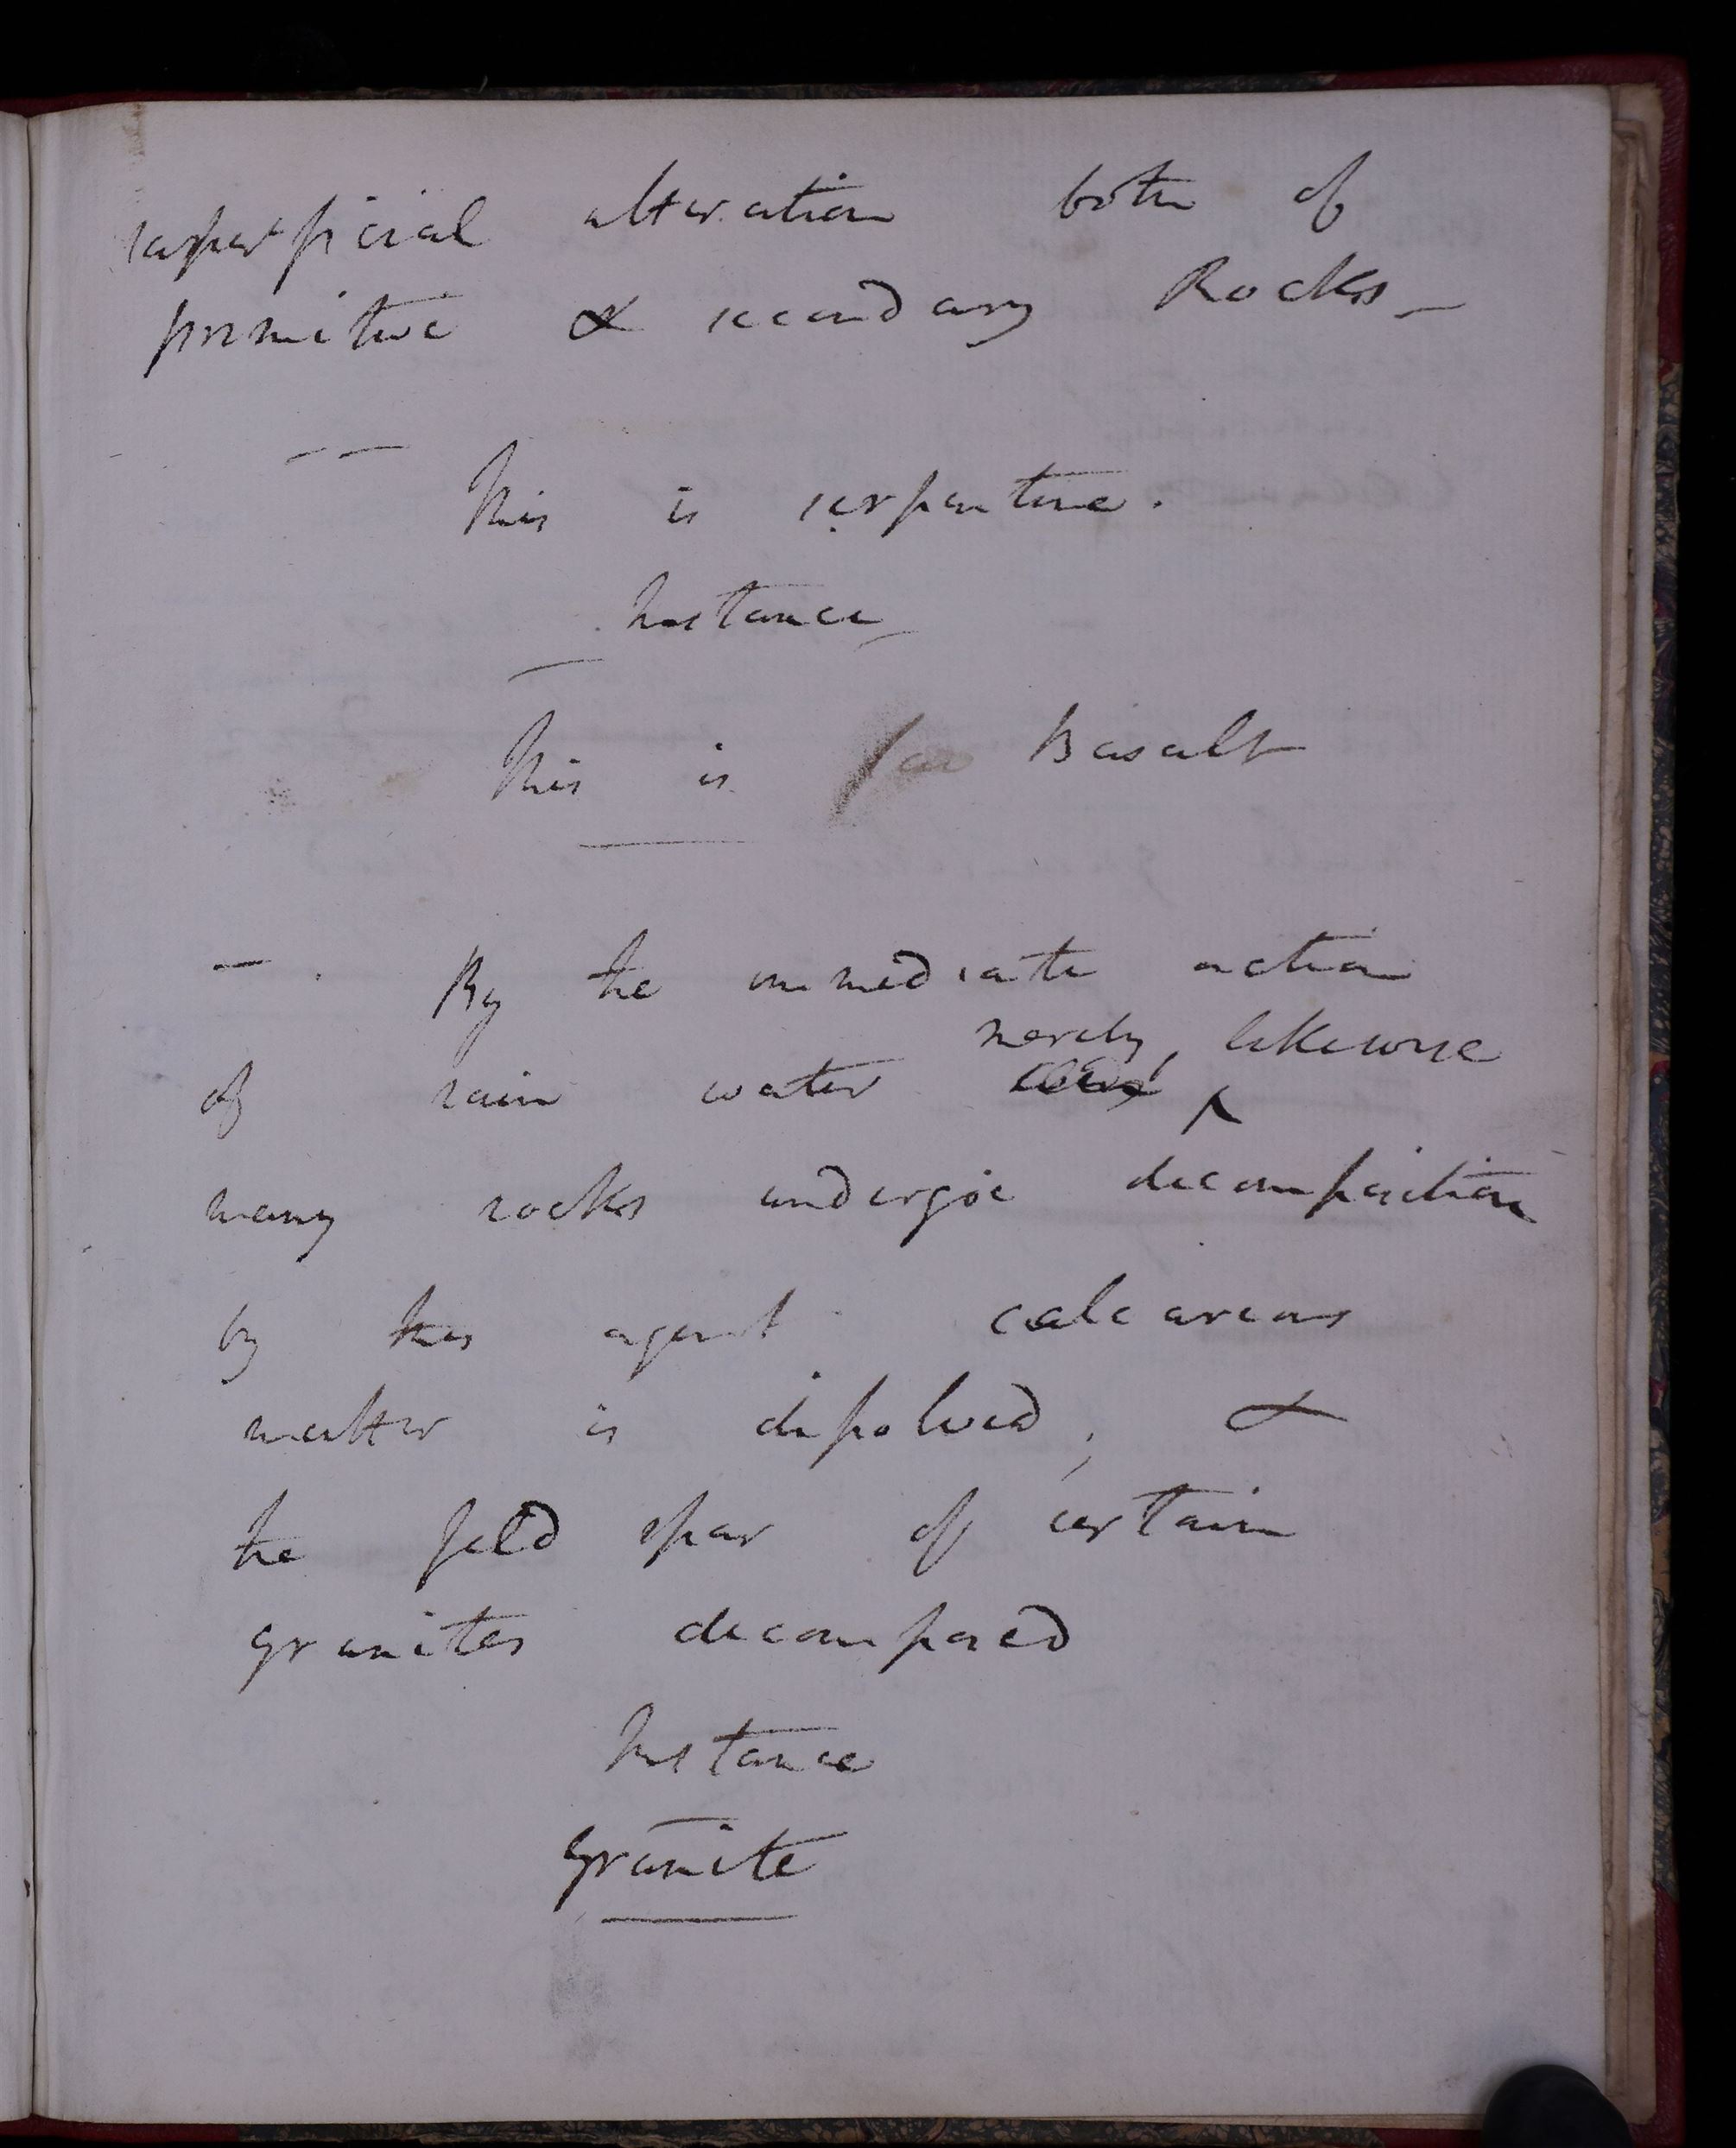 superficial alteration both of
primitive & secondary Rocks_
— — This is serpentine.
Instance
This is Basalt
— . By the immediate action
merely, likewise
of rain water ^
many rocks undergoe decomposition
by this agent calcareous
matter is dissolved, &
the feldspar of certain
granites decomposed
Instance
granite